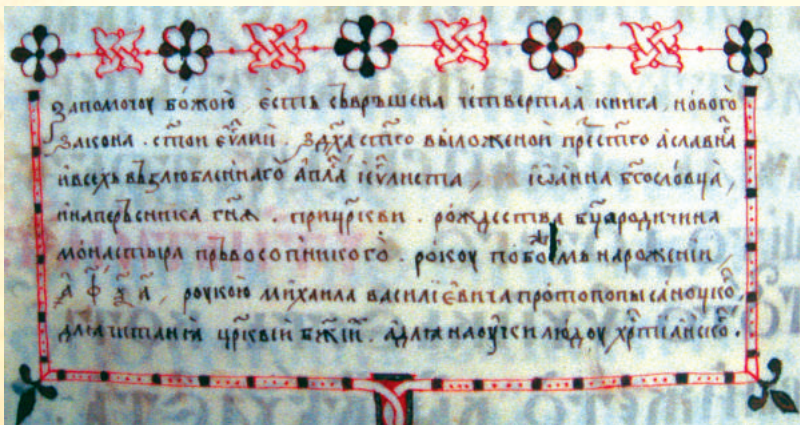 За помочоу божою єсть съвръшена четвертаа книга, нового
закона. ст҃ои еѵ҃лии. З дх҃а ст҃го выложеной през ст҃го а славна
и всехъ възлюбленнаго ап҃ла і еѵ҃листа, іѡанна бг҃ословца,
и наперьсника гн҃ѧ. при цр҃кви. рождества бц҃а родичина
монастыра пр҃восопницкого. рокоу по бож҃ӏмь нарожении
҂а҃ ф҃ ѯ҃ а҃, роукою михаила василїєвича протопопы саноцко҃,
для читаніѧ цр҃кви бж҃їи. а для наоучен людоу хр҃тїанско҃.